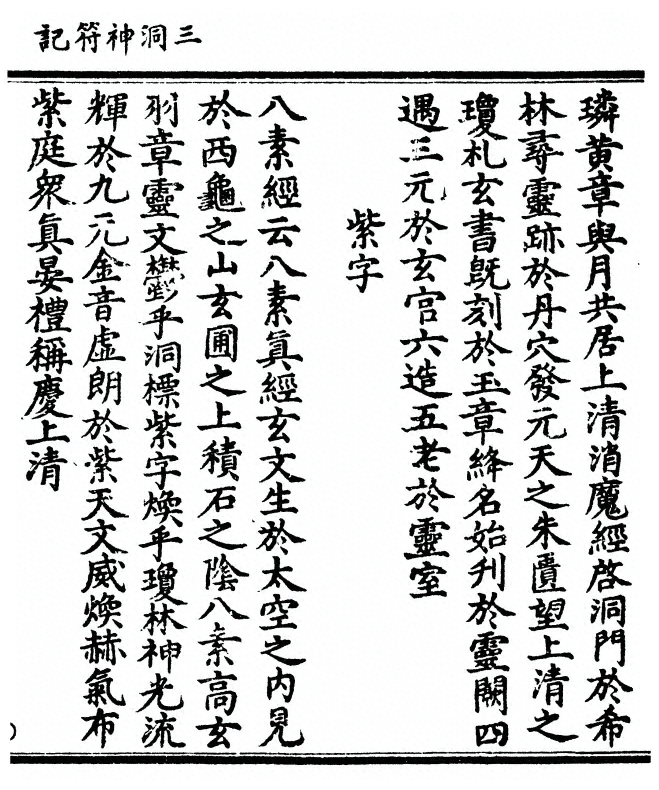 三洞神符記
璘黃章與月共居上清消魔經啓洞門於希
林尋靈跡於丹穴發元天之朱匱望上清之
瓊札玄書旣刻於玉章絳名始刋於靈闕四
遇三元於玄宮六造五老於靈室
紫字
八素經云八素眞經玄文生於太空之內見
於西龜之山玄圃之上積石之陰八素高玄
羽章靈文欝乎洞標紫字煥乎瓊林神光流
輝於九元金音虛朗於紫天文威煥赫氣布
紫庭衆眞晏禮稱慶上清